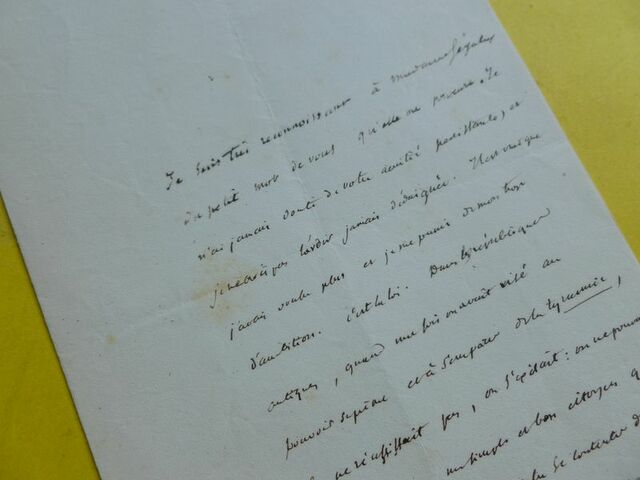 Je suis très reconnaissant à Madame Ségalas
du petit mot de vous qu'elle me procure. Je
n'ai jamais douté de votre amitié puissante, et
je ne crois pas l'avoir jamais dédaignée. Il est vrai que
j'avais voulu plus et je me punis de mon trop
d'ambition. c'est la loi. Dans les républiques
antiques, quand une fois on avait visé au
pouvoir suprême et à s'emparer de la tyrannie,
ne réussissait pas, on s'exilait : on ne pouvait
simple et bon citoyen
se contenter d